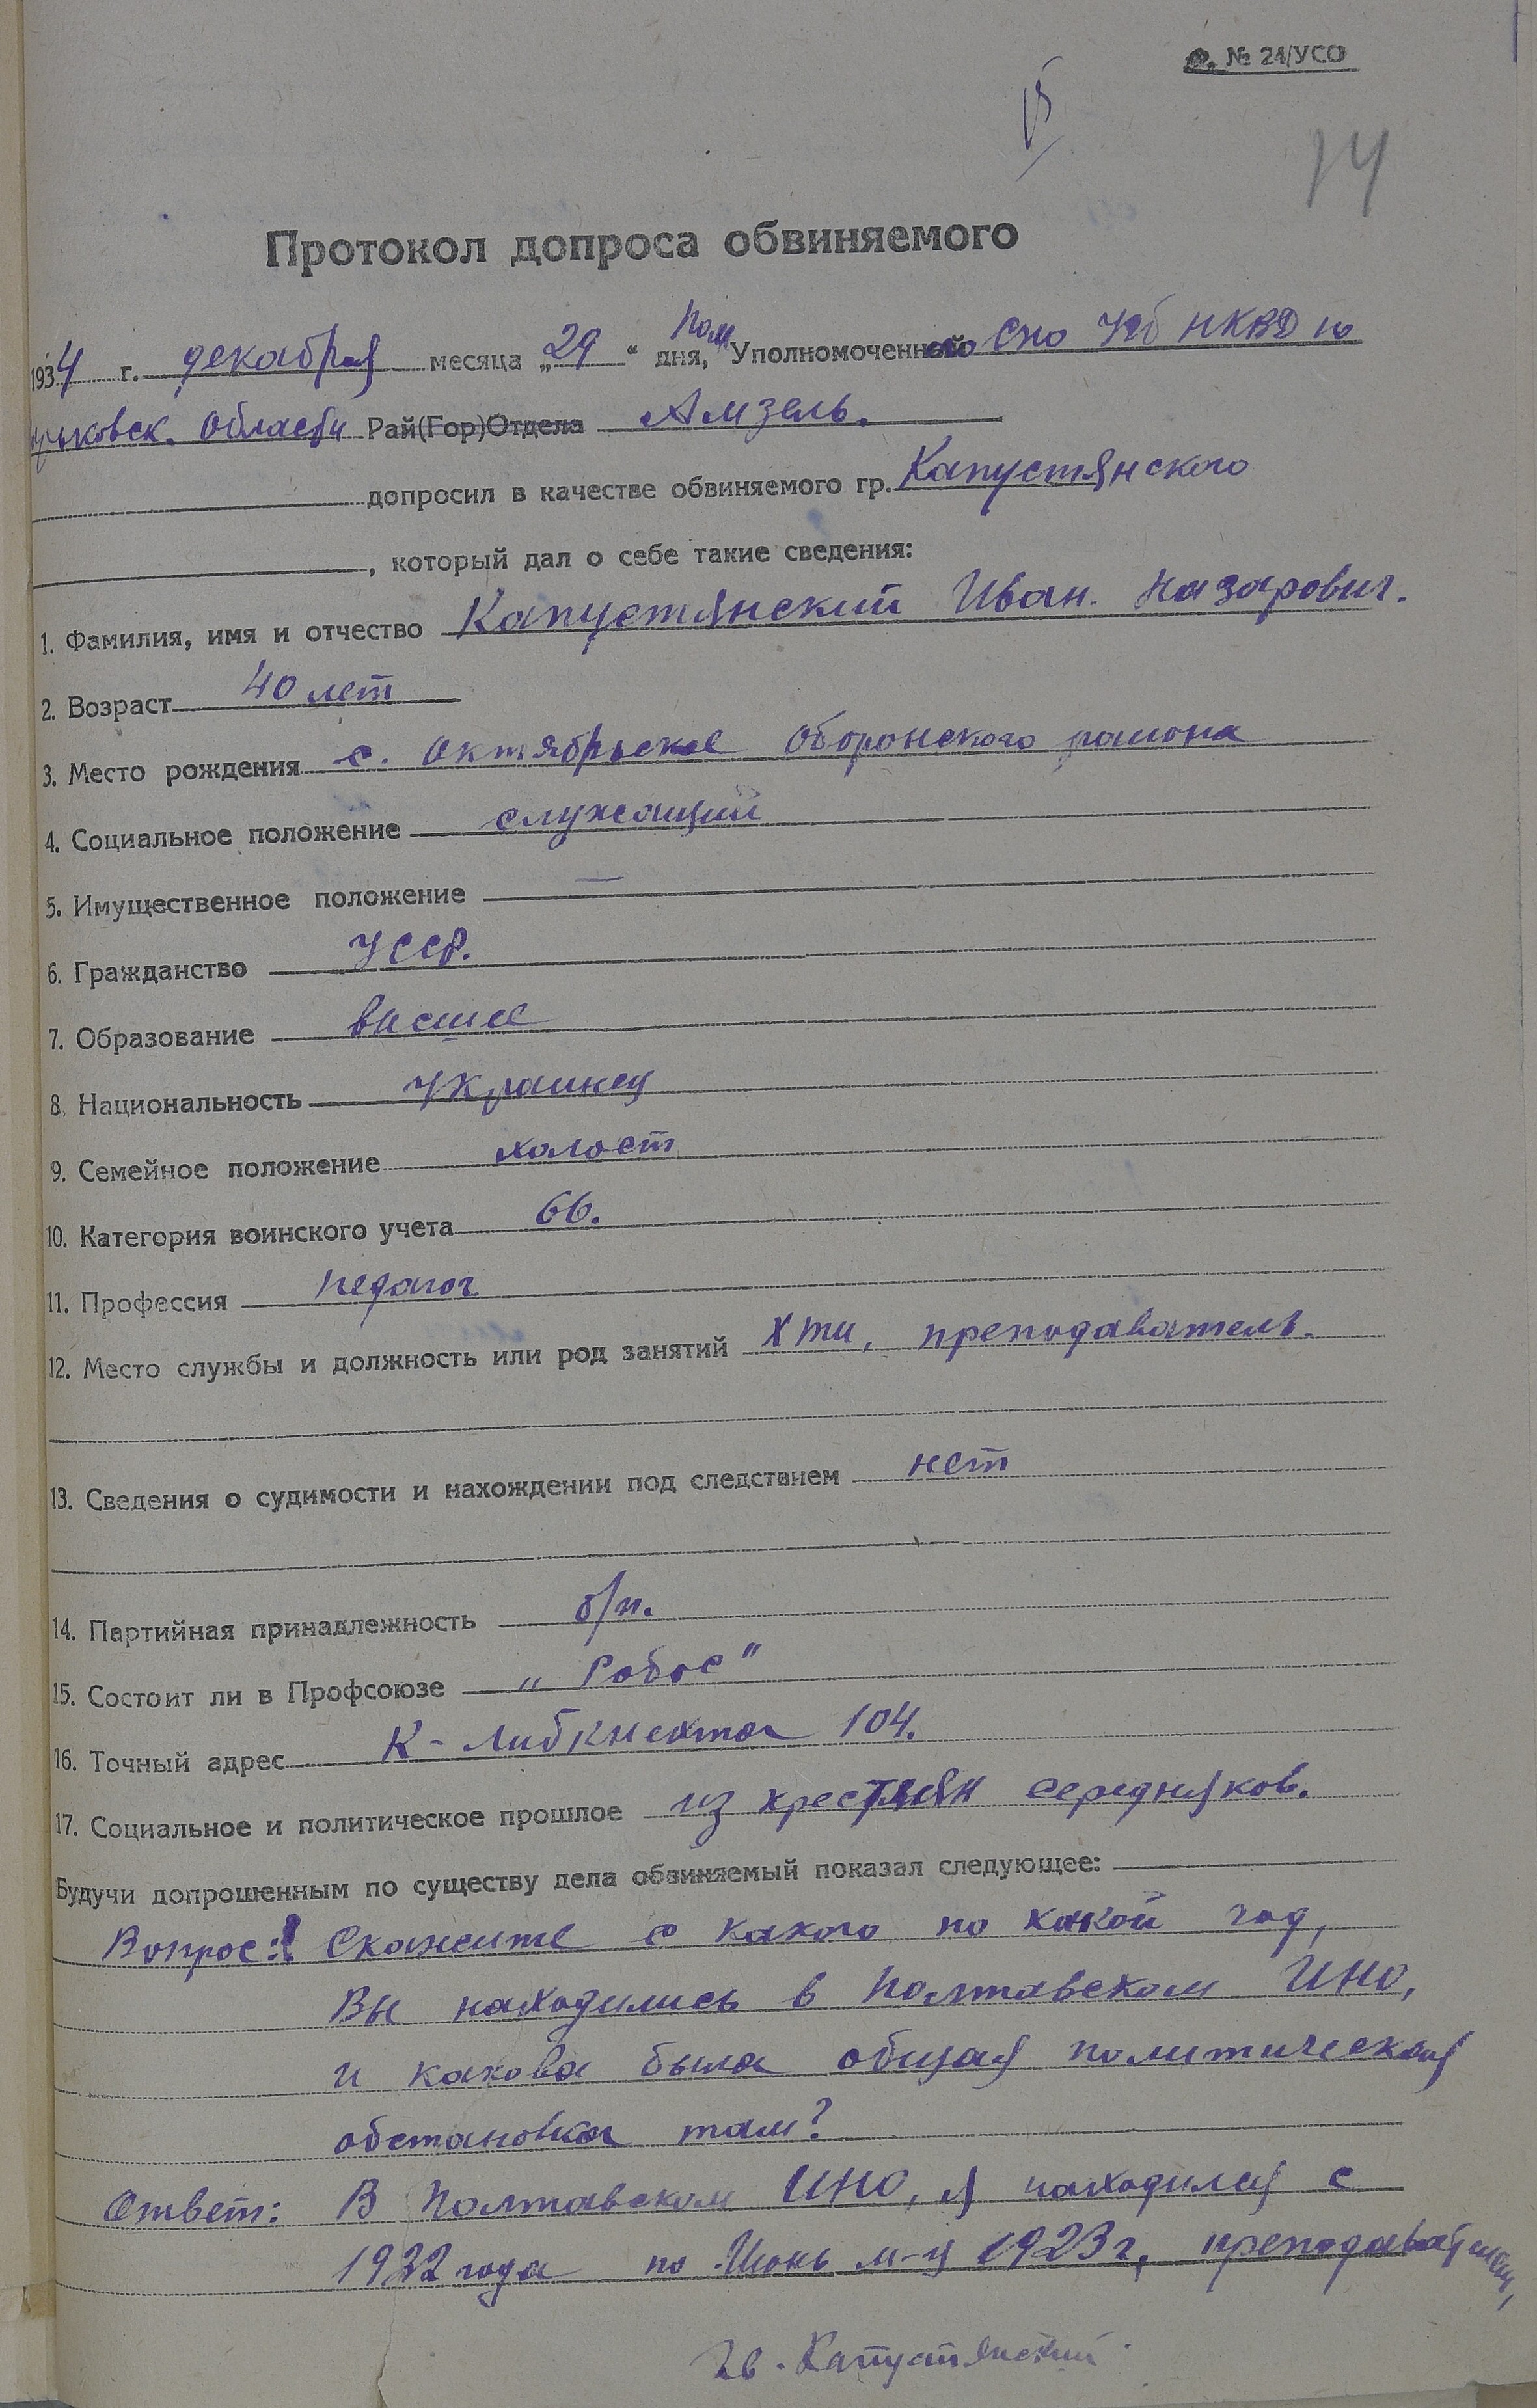 Ф. № 21/УСО
15
14
Протокол допроса обвиняемого
1934 г. декабря месяца „29“ дня, Пом Уполномоченного СПО УГБ НКВД по
Харьковск. Области Рай(Гор)Отдела Амзель.
допросил в качестве обвиняемого гр. Капустянского
, который дал о себе такие сведения:
1. Фамилия, имя и отчество Капустянский Иван. Назарович.
2. Возраст 40 лет
3. Место рождения с. Октябрьское района
4. Социальное положение служащий
5. Имущественное положение —
6. Гражданство УССР.
7. Образование высшее
8. Национальность Украинец
9. Семейное положение холост
10. Категория воинского учета 66.
11. Профессия педагог
12. Место службы и должность или род занятий ХТИ, преподаватель.
13. Сведения о судимости и нахождении под следствием нет
14. Партийная принадлежность б/п.
15. Состоит ли в Профсоюзе „Робос"
16. Точный адрес К-Либкнехта 104.
17. Социальное и политическое прошлое из крестьян середняков.
Будучи допрошенным по существу дела обвиняемый показал следующее:
Вопрос: Скажите с какого по какой год,
Вы находились в Полтавском ИНО,
и какова была общая политическая
обстановка там?
Ответ: В Полтавском ИНО, я находился с
1922 года по Июнь м-ц 1923 г,
Ів. Капустянский